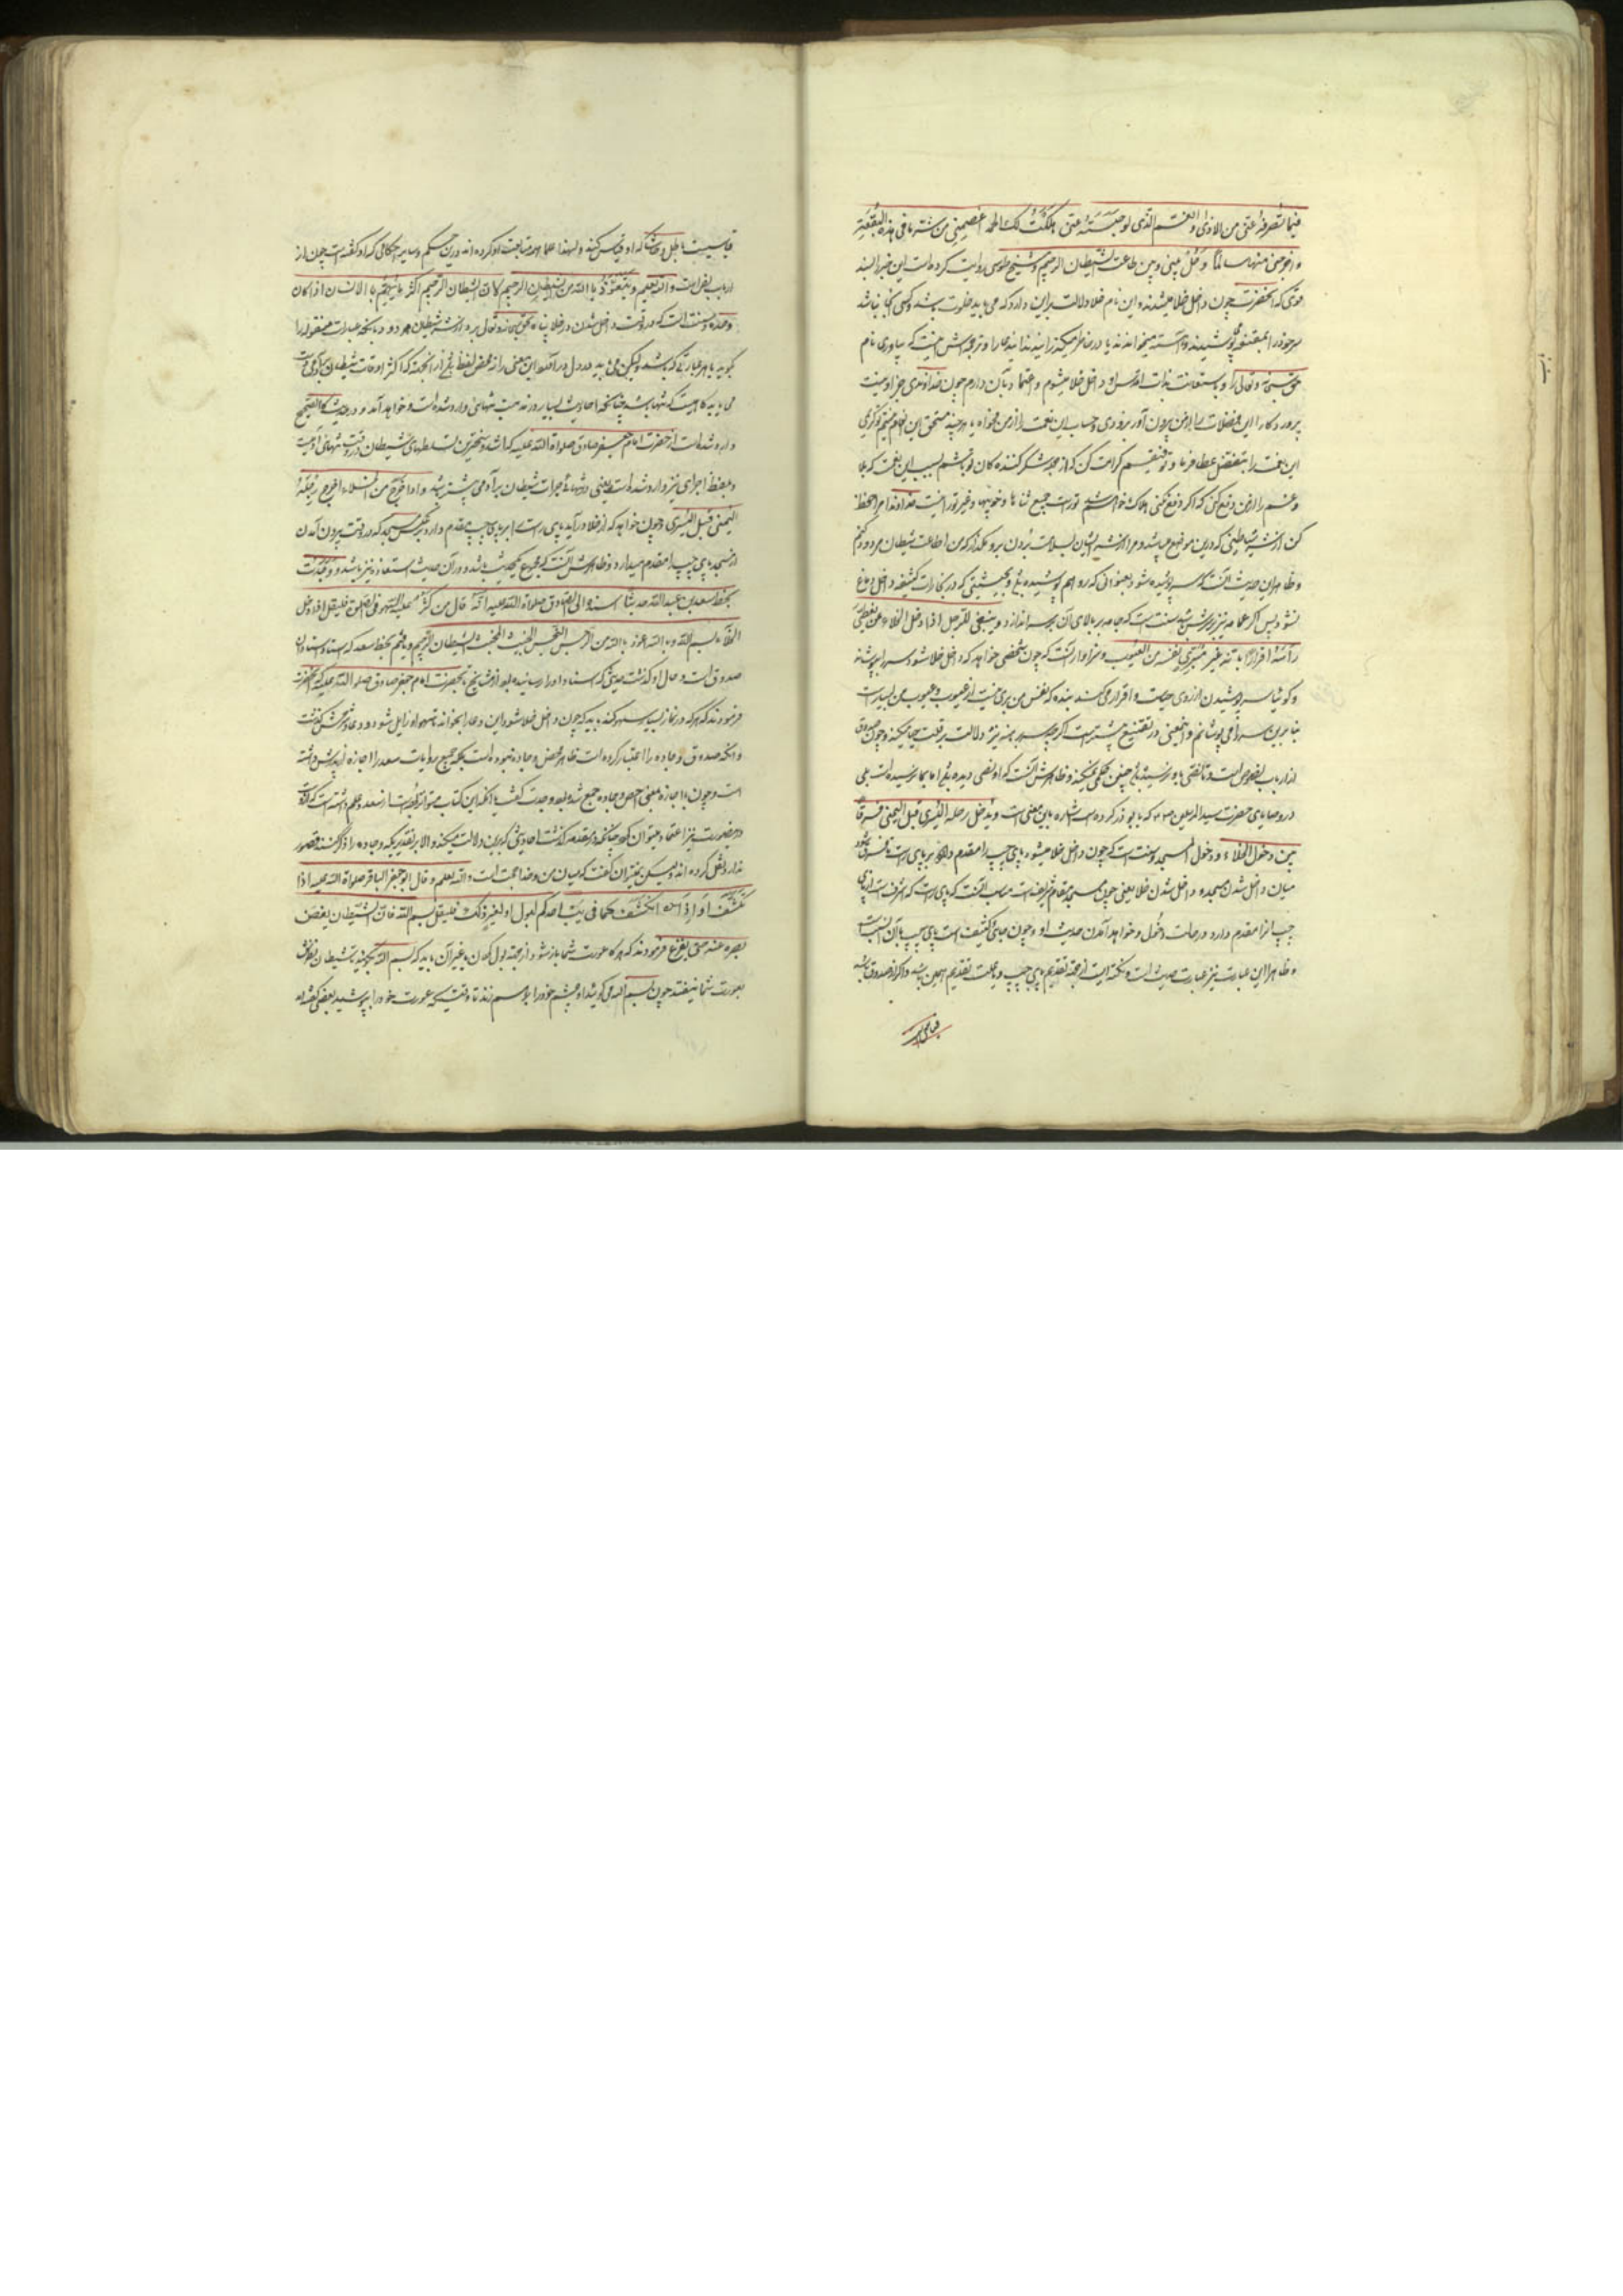 فیما تصرفه عنی من الاذی و الغم الذی لو حبسته عنی هلکت لک الحمد اعصمنی من شر ما فی هذه البقعة
و اخرجنی منها سالما و حل بینی و بین طاعت الشیطان الرجیم و شیخ طوسی روایت کرده است این خبر را بسند
قوی که آنحضرت چون داخل خلا میشدند و این نام خلا دلالت برین دارد که می باید خلوت باشد و کسی آنجا نباشد
سر خود را بمقنعه می پوشیدند و آهسته میخواندند یا در خاطر میگذرانیدند این دعا را و ترجمه اش اینست که بیاوری نام
حق سبحانه و تعالی و باستعانت بذات اقدس او داخل خلا میشوم و اعتماد بآن دارم چون خداوندی جز او نیست
پروردگارا این فضلات را از من بیرون آور بزودی و حساب این نعمت را از من مخواه یا هر چند مستحق این انعام نیستم
این نعمت را بتفضل عطا فرما و توفیقم کرامت کن که از جمله شکر کنندگان تو باشم بسبب این نعمت که بلا
و غم را از من دفع کنی که اگر دفع نکنی هلاک خواهم شد تو راست جمیع ثناها و خوبیها و غیر تو را نیست خداوندا مرا حفظ
کن از شر شیاطینی که درین موضع میباشند و مرا از شر ایشان بسلامت بیرون بر و مگذار که من اطاعت شیطان مردود کنم
و ظاهر این حدیث آنست که سر پوشیده شود بعنوانی که رو هم پوشیده باشد و بحیثیتی که در بخارات کثیفه داخل دماغ
نشود پس اگر عمامه نیز بر سرش باشد سنت است که جامه بر بالای آن بر سر اندازد و ینبغی للرجل اذا دخل الخلاء ان یغطی
رأسه اقرارا بانه غیر مبری نفسه من العیوب و سزاوار آنست که چون شخصی خواهد که داخل خلا شود سر را بپوشاند
و گویا سر پوشیدن از روی حیاست و اقرار می کند بنده که نفس من بری نیست از عیوب و عیوب من بسیارست
بنابرین سر را می پوشانم و این معنی در تقنیع بیشترست اگر چه سر برهنه نیز دلالت بر قلت حیا میکند و چون صدوق
از ارباب نصوص است و تا نصی باو نرسیده باشد چنین حکمی نمیکند و ظاهرش آنست که او نصی دیده باشد اما بما نرسیده است بلی
در وصایای حضرت سید المرسلین که بابو ذر کرده است اشاره باین معنی است و یدخل رجله الیسری قبل الیمنی فرقا
بین دخول الخلاء و دخول المسجد و سنت است که چون داخل خلا میشود پای چپ را مقدم دارد بر پای راست تا فرق شود
میان داخل شدن مسجد و داخل شدن خلا یعنی چون مسجد مقام شریفست مناسب آنست که پای راست که اشرف است از پای
چپ آنرا مقدم دارد در حالت دخول و خواهد آمدن حدیث او و چون جای کثیف است پای چپ بآن انسب است
و ظاهرا این عبارت نیز عبارت حدیث است و نکته ایست از جهة تقدیم پای چپ و علت تقدیم همین باشد و اگر از صدوق باشد
قیاسی است
قیاسیست باطل و حاشا که او قیاس کند و لهذا علما همه متابعت او کرده اند درین حکم و سایر احکامی که او گفته است چون از
ارباب نص است و الله یعلم و یتعوذ بالله من الشیطان الرجیم لان الشیطان الرجیم اکثر ما یهتم بالانسان اذا کان
وحده و سنت است که در وقت داخل شدن در خلا پناه بحق سبحانه و تعالی برد از شر شیطان مردود بآنچه عبارت منقوله را
بگوید یا هر عبارتی که باشد و لیکن می باید در دل درآورد این معنی را نه محض لفظ باشد از آنجهة که اکثر اوقات شیطان بر آدمی دست
می یابد گاهیست که تنها باشد چنانکه احادیث بسیار در مذمت تنهائی وارد شده است و خواهد آمد و در حدیث کالصحیح
وارد شده است از حضرت امام جعفر صادق صلوات الله علیه که اشد و سختترین تسلطهای شیطان در وقت تنهائی آدمیست
و بلفظ اجرای نیز وارد شده است یعنی در تنهائی جرأت شیطان بر آدمی بیشتر میباشد و اذا خرج من الخلاء اخرج رجله
الیمنی قبل الیسری و چون خواهد که از خلا درآید پای راست را بر پای چپ مقدم دارد بر عکس مسجد که در وقت بیرون آمدن
از مسجد پای چپ را مقدم میدارد و ظاهرش آنست که مجموع یک حدیث باشد و در آن حدیث استعاذه نیز باشد و وجدت
بخط سعد بن عبدالله حدیثا اسنده الی الصادق صلوات الله علیه انه قال من کثر علیه السهو فی الصلوة فلیقل اذا دخل
الخلاء بسم الله و بالله اعوذ بالله من الرجس النجس الخبیث المخبث الشیطان الرجیم و یافتم بخط سعد که استاد استادان
صدوق است و حال او گذشت حدیثی که اسناد او را رسانیده بود از مشایخ تا بحضرت امام جعفر صادق صلوات الله علیه که آنحضرت
فرمودند که هر که در نماز بسیار سهو کند باید که چون داخل خلا شود این دعا را بخواند تا سهو او زایل شود و دعا و شرحش گذشت
و آنکه صدوق وجاده را اعتبار کرده است ظاهرا محض وجاده نبوده است بلکه جمیع روایات سعد را اجازه از پدرش داشته
است و چون با اجازه بمعنی اخص وجاده جمیع شده بود وجدت گفت یا آنکه این کتاب متواتر بوده است از سعد و علم داشته است که خط اوست
درینصورت نیز اعتماد میتوان کرد چنانکه در مقدمه گذشت احادیثی که برین دلالت میکند و الا بر تقدیریکه وجاده را ذکر کنند قصور
ندارد نقل کرده اند و لیکن نمیتوان گفت که میان من و خدا حجت است و الله یعلم و قال ابو جعفر الباقر صلوات الله علیه اذا
انکشف احدکم لبول او لغیر ذلک فلیقل بسم الله فان الشیطان یغض
بصره عنه حتی یفرغ فرمودند که هر گاه عورت شما باز شود از جهة بول کردن یا غیر آن باید که بسم الله بگویید تا شیطان را نظرش
بعورت شما نیفتد چون بسم الله می گوئید او چشم خود را بر هم زند تا وقتی که عورت خود را بپوشید بعضی گفته اند